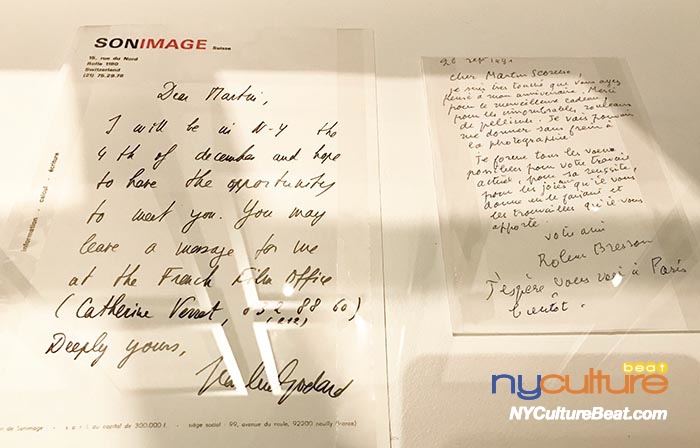 SONIMAGE Suisse
15, rue du Nord
Rolle 1180
Switzerland
(21) 75.29.78
Dear Martin,
I will be in N-Y the
4th of december and hope
to have the opportunity
to meet you. You may
leave a message for me
at the French Film Office
(Catherine Verret, 832 88 60)
Deeply yours,
Jean-Luc Godard
information - calcul - écriture
de Sonimage s.a.r.l. au capital de 300.000 f. - siège social : 99, avenue du roule, 92200 neuilly (france)
26 sept
Cher Martin Scorsese,
je suis très touché que vous ayez
pensé à mon anniversaire. Merci
pour le merveilleux cadeau,
pour les innombrables rouleaux
de pellicule. Je vais pouvoir
me donner sans frein à
la photographie.
Je forme tous les vœux
possibles pour votre travail
actuel, pour sa réussite,
pour les joies qu'il vous
donne en le faisant et
les trouvailles qu'il vous
apporte.
votre ami
Robert Bresson
J'espère vous voir à Paris
bientôt.
nyculture beat
NYCultureBeat.com